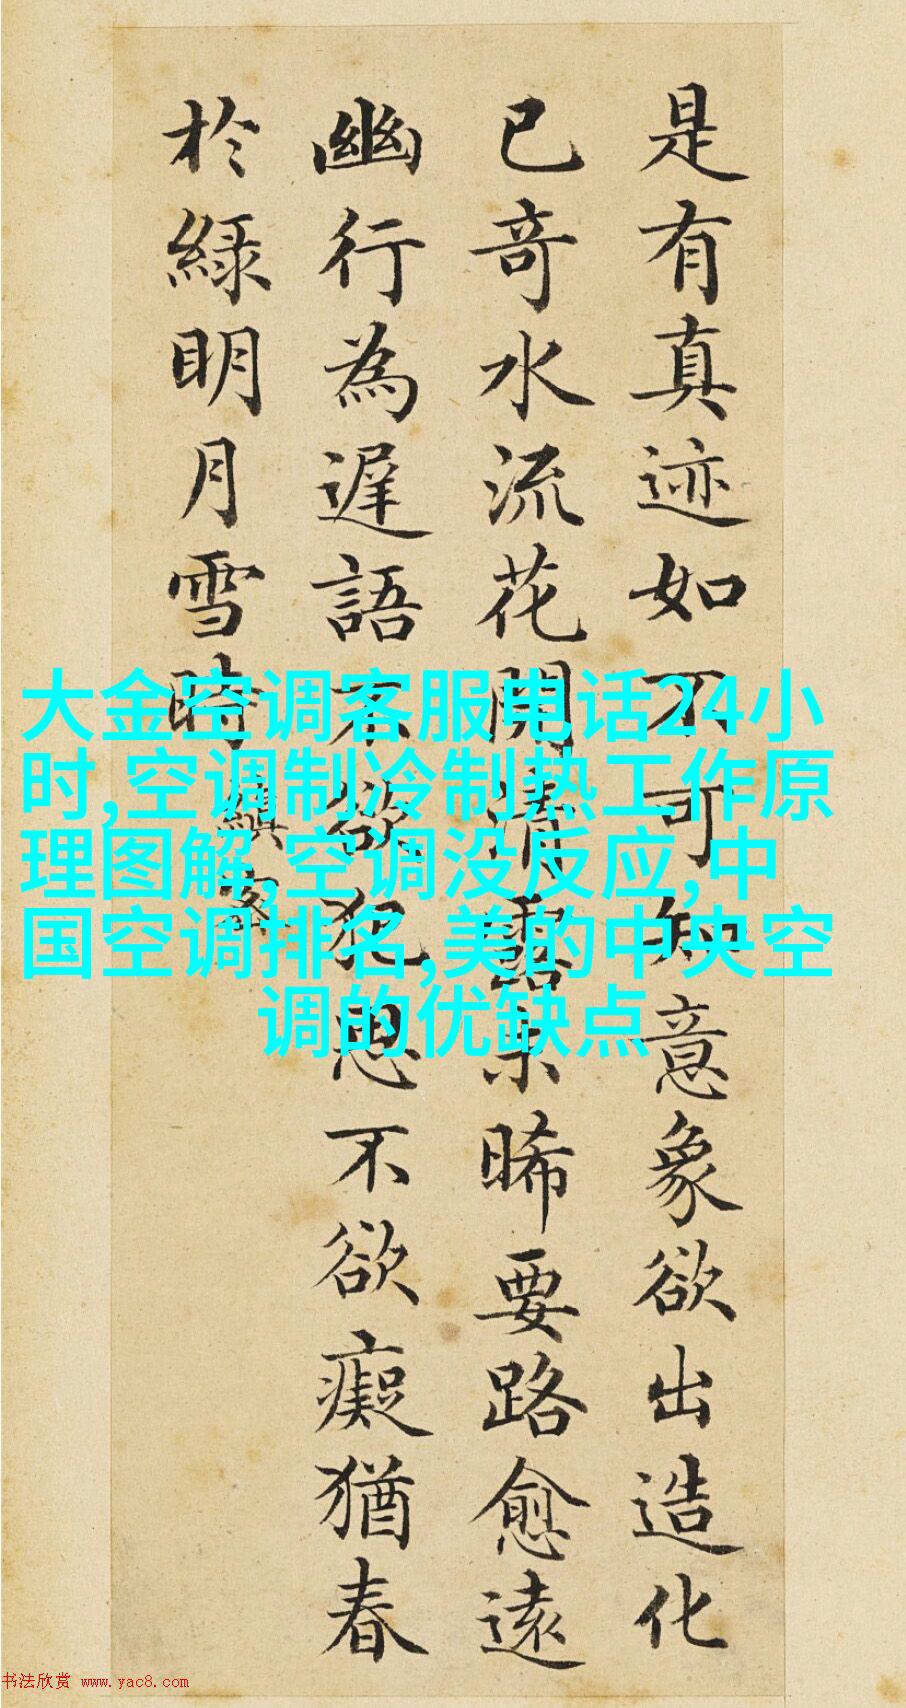 是有真迹如不可知意象欲出造化
已奇水流花開清露未晞要路愈遠
幽行為遲語不欲犯思不欲癡猶春
於綠明月雪時
縝密
大金空调客服电话24小
时,空调制冷制热工作原
理图解,空调没反应,中
国空调排名,美的中央空
调的优缺点
书法欣赏 www.yac8.com